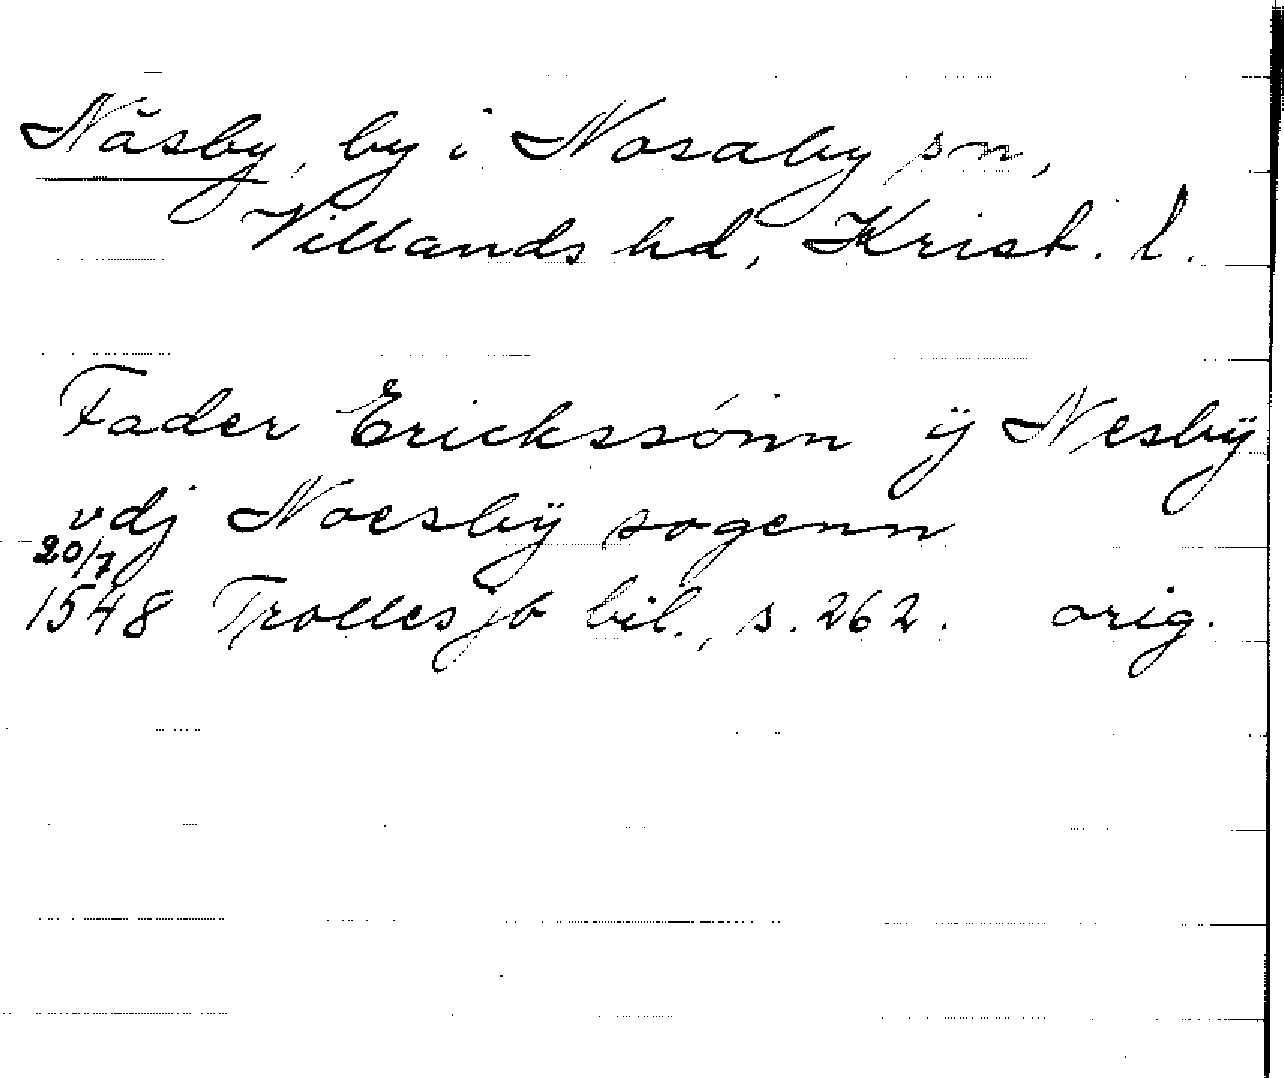 Näsby, by i Nosaby sn,
Villands hd, Krist. l.
Fader Erickssónn ÿ Nesbÿ
vdj Noesbÿ sogenn
20/7
1548 Trolles jb bil., s. 262. orig.